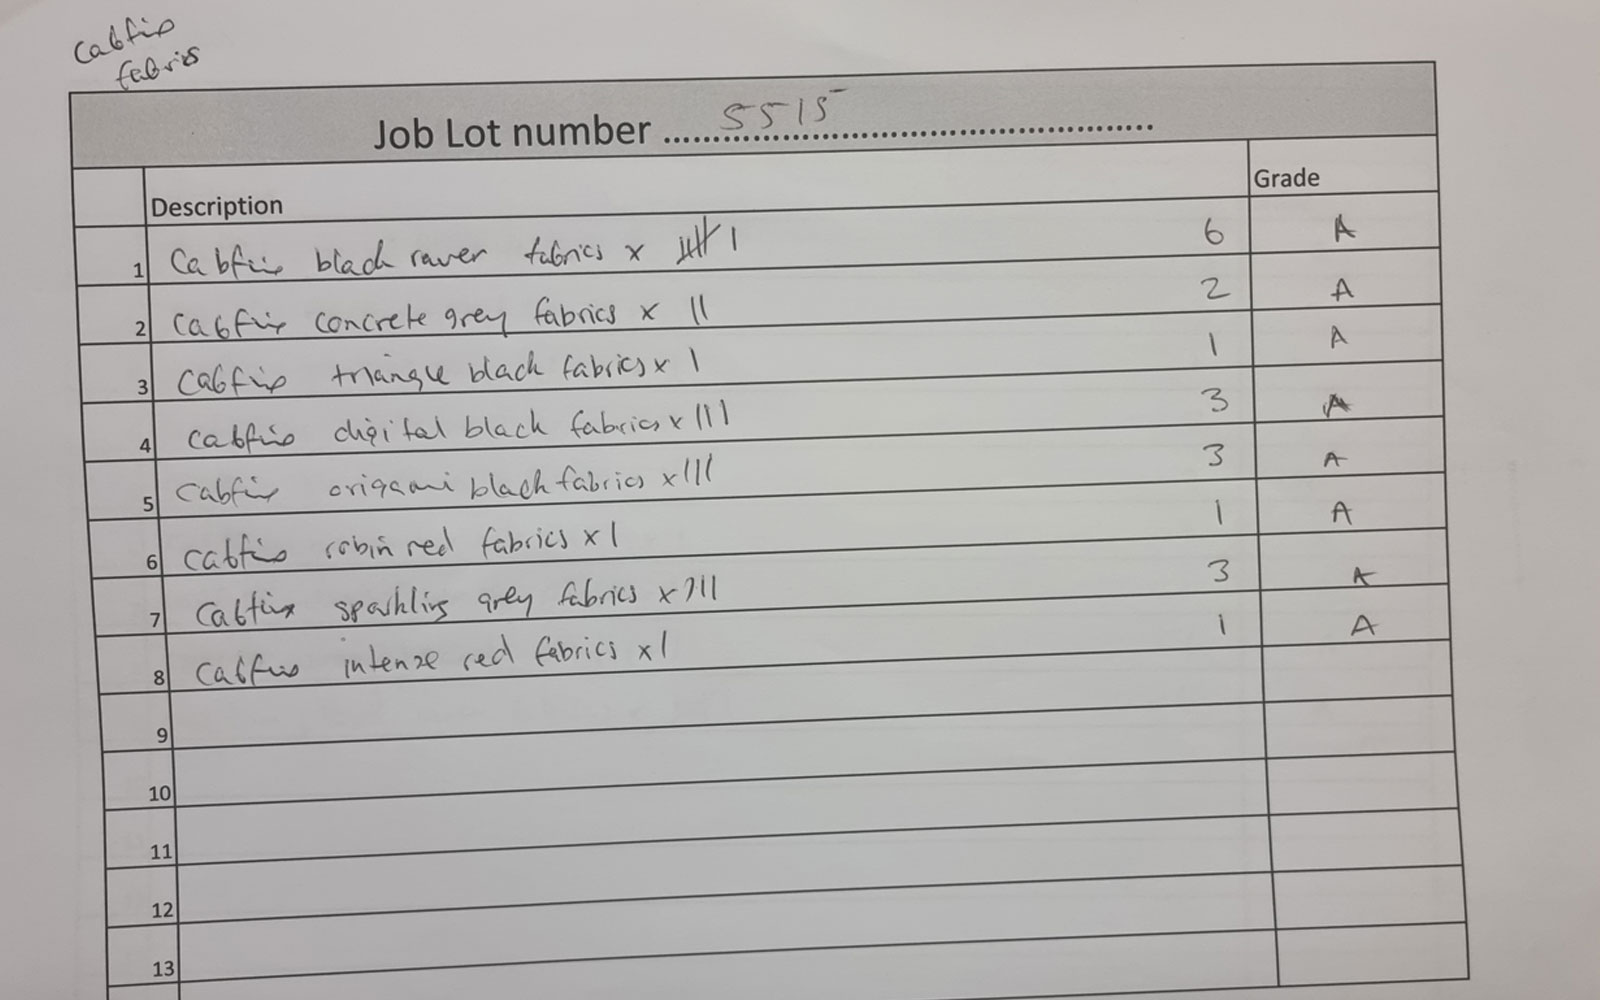 Cabfix
fabrics
Job Lot number 5515
Description Grade
1 Cabfix black raven fabrics x 卌 I 6 A
2 Cabfix concrete grey fabrics x II 2 A
3 Cabfix triangle black fabrics x I 1 A
4 Cabfix digital black fabrics x III 3 A
5 Cabfix origami black fabrics x III 3 A
6 Cabfix robin red fabrics x I 1 A
7 Cabfix sparkling grey fabrics x III 3 A
8 Cabfix intense red fabrics x I 1 A
9
10
11
12
13